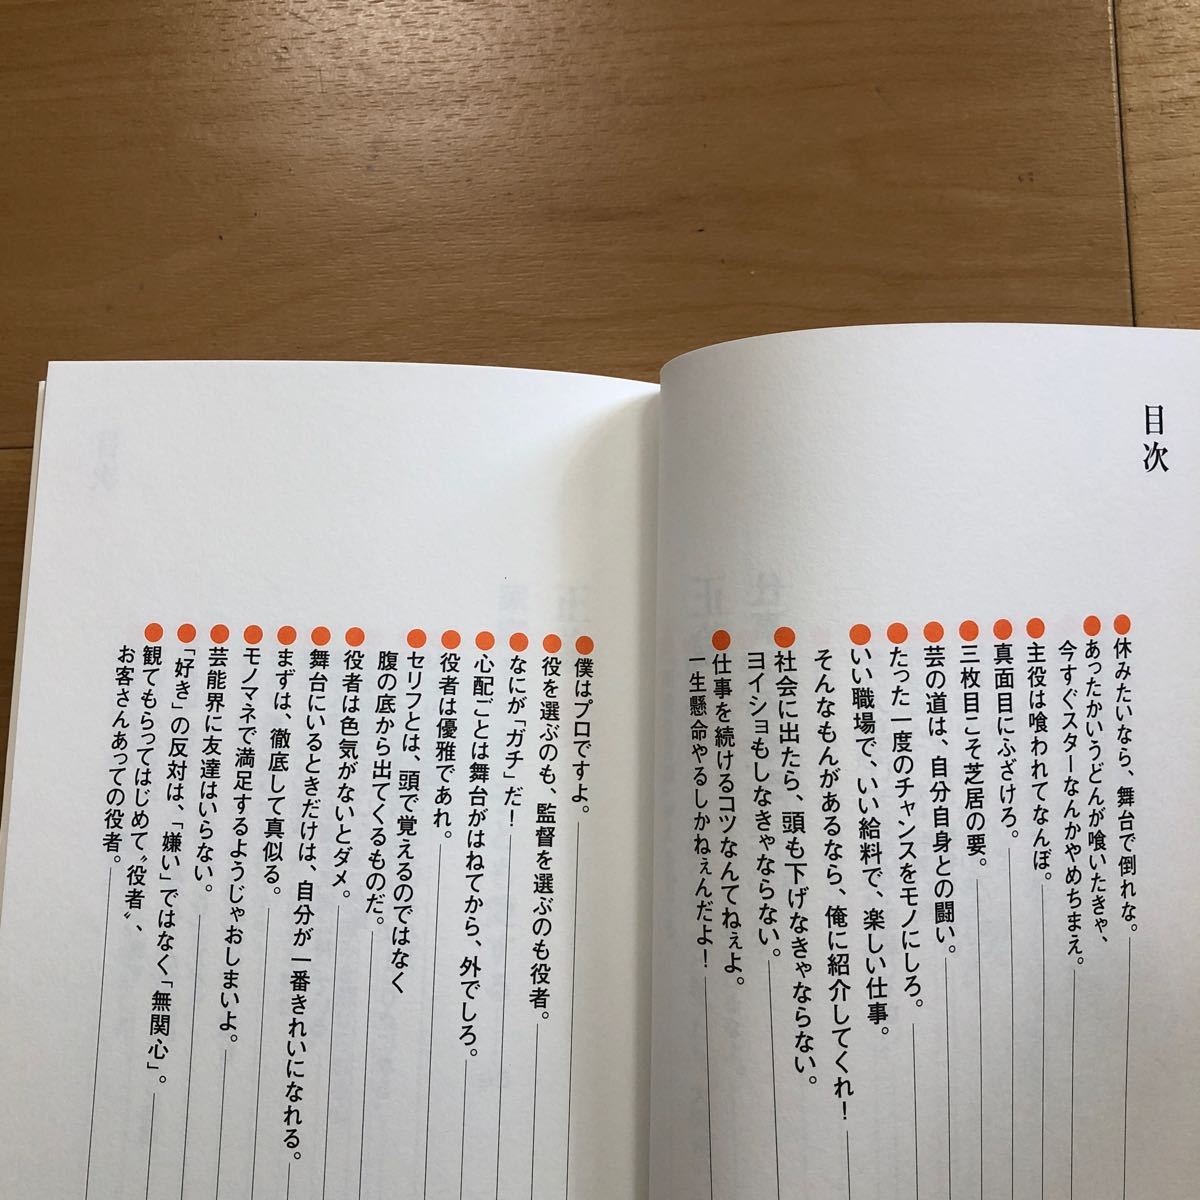 目次
休みたいなら、舞台で倒れな。
あったかいうどんが喰いたきゃ、
今すぐスターなんかやめちまえ。
主役は喰われてなんぼ。
真面目にふざけろ。
三枚目こそ芝居の要。
芸の道は、自分自身との闘い。
たった一度のチャンスをモノにしろ。
いい職場で、いい給料で、楽しい仕事。
そんなもんがあるなら、俺に紹介してくれ！
社会に出たら、頭も下げなきゃならない。
ヨイショもしなきゃならない。
仕事を続けるコツなんてねぇよ。
一生懸命やるしかねぇんだよ！
僕はプロですよ。
役を選ぶのも、監督を選ぶのも役者。
なにが「ガチ」だ！
心配ごとは舞台がはねてから、外でしろ。
役者は優雅であれ。
セリフとは、頭で覚えるのではなく
腹の底から出てくるものだ。
役者は色気がないとダメ。
舞台にいるときだけは、自分が一番きれいになれる。
まずは、徹底して真似る。
モノマネで満足するようじゃおしまいよ。
芸能界に友達はいらない。
「好き」の反対は、「嫌い」ではなく「無関心」。
観てもらってはじめて〝役者〟、
お客さんあっての役者。